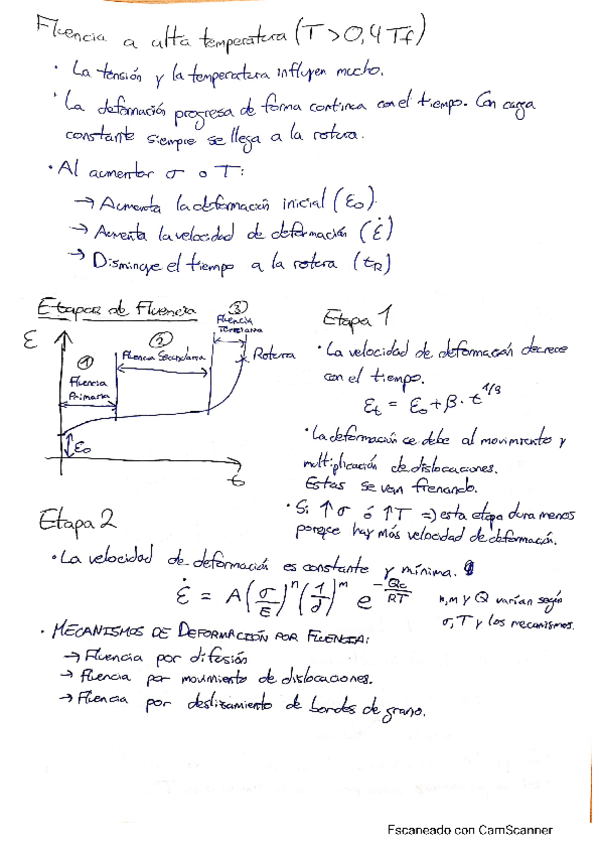 Fluencia a alta temperatura (T > 0,4 Tf)
· La tensión y la temperatura influyen mucho.
· La deformación progresa de forma continua con el tiempo. Con carga
constante siempre se llega a la rotura.
· Al aumentar σ o T:
→ Aumenta la deformación inicial (ε₀).
→ Aumenta la velocidad de deformación (ε̇)
→ Disminuye el tiempo a la rotura (tR)
Etapas de Fluencia
ε
①
Fluencia
Primaria
②
Fluencia Secundaria
③
Fluencia
Terciaria
Rotura
ε₀
t
Etapa 1
· La velocidad de deformación decrece
con el tiempo.
εt = ε₀ + β · t^1/3
· La deformación se debe al movimiento y
multiplicación de dislocaciones.
Estas se van frenando.
· Si ↑σ ó ↑T => esta etapa dura menos
porque hay más velocidad de deformación.
Etapa 2
· La velocidad de deformación es constante y mínima.
ε̇ = A (σ/E)^n (1/d)^m e^-Qc/RT
n, m y Q varían según
σ, T y los mecanismos.
· MECANISMOS DE DEFORMACIÓN POR FLUENCIA:
→ Fluencia por difusión
→ Fluencia por movimiento de dislocaciones.
→ Fluencia por deslizamiento de bordes de grano.
Escaneado con CamScanner